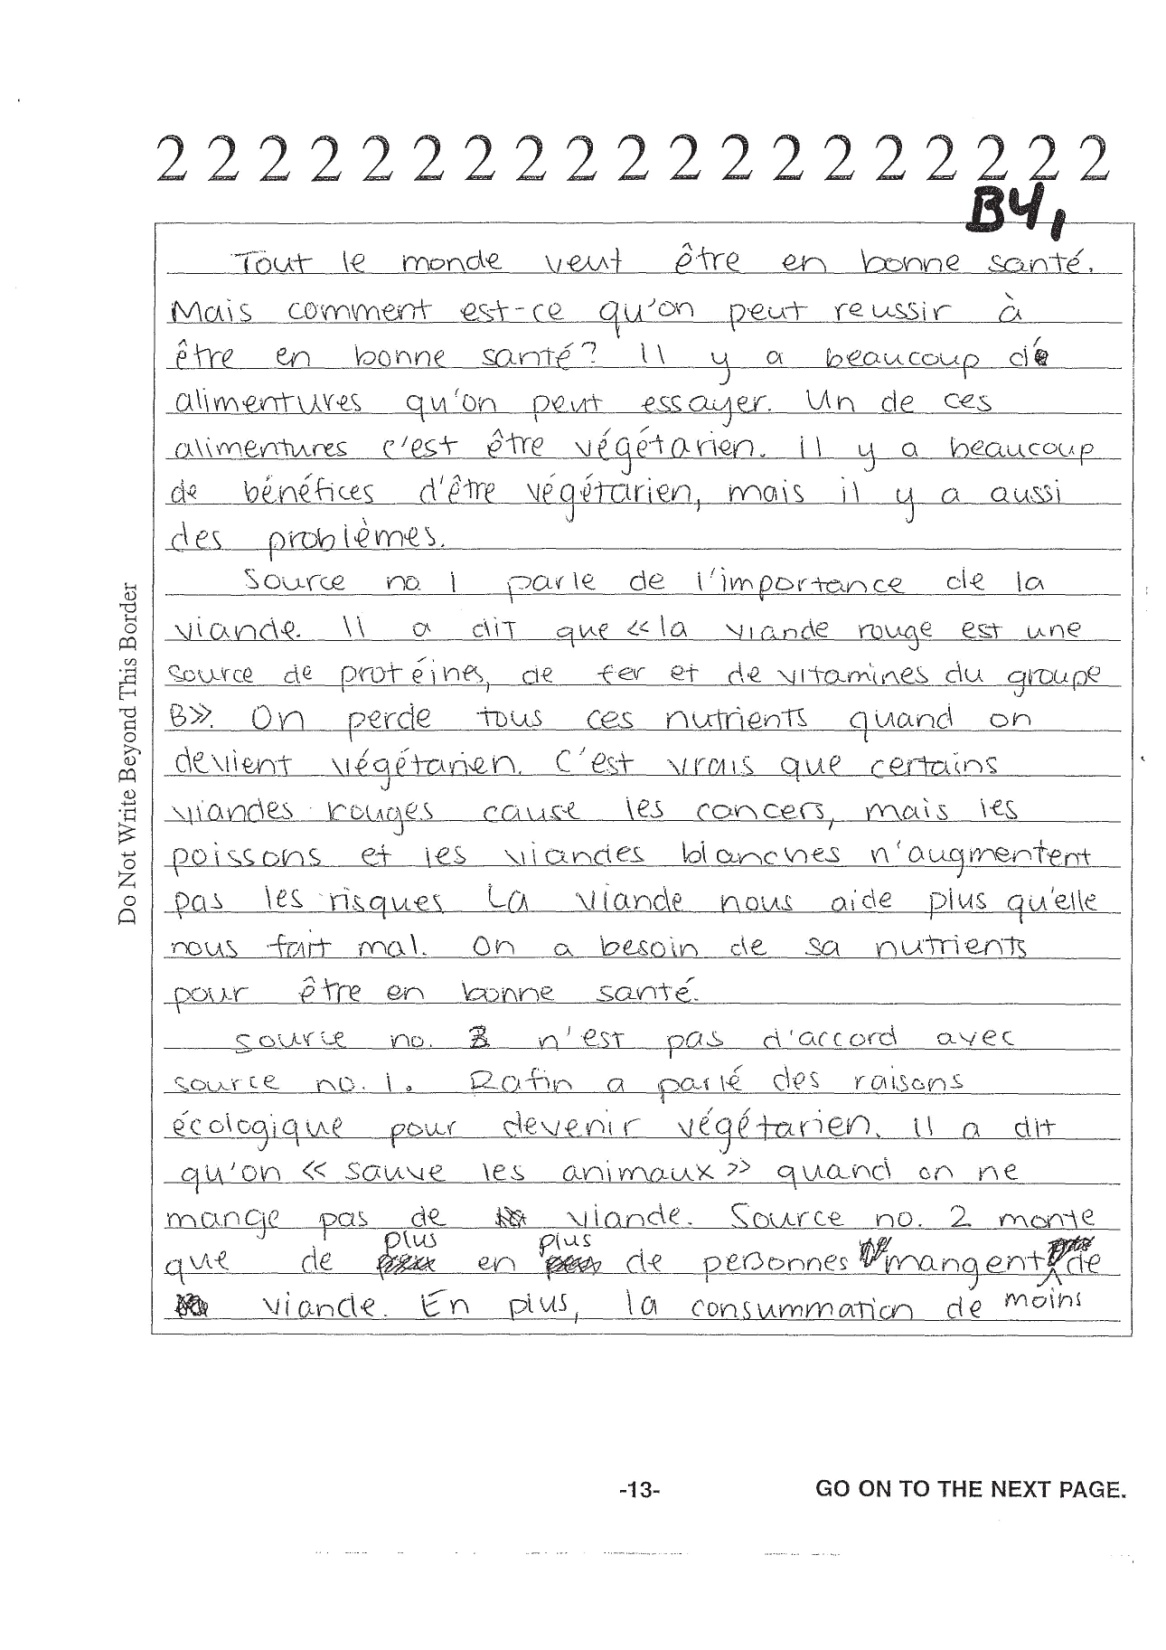 2 2 2 2 2 2 2 2 2 2 2 2 2 2 2 2 2 2 2
B4,
Tout le monde veut être en bonne santé.
Mais comment est-ce qu'on peut reussir à
être en bonne santé? Il y a beaucoup de
alimentures qu'on peut essayer. Un de ces
alimentures c'est être végétarien. Il y a beaucoup
de bénéfices d'être végétarien, mais il y a aussi
des problèmes.
Source no. 1 parle de l'importance de la
viande. Il a dit que «la viande rouge est une
source de protéines, de fer et de vitamines du groupe
B». On perde tous ces nutrients quand on
devient végétarien. C'est vrais que certains
viandes rouges cause les cancers, mais les
poissons et les viandes blanches n'augmentent
pas les risques. La viande nous aide plus qu'elle
nous fait mal. On a besoin de sa nutrients
pour être en bonne santé.
Source no. 3 n'est pas d'accord avec
source no. 1. Rafin a parlé des raisons
écologique pour devenir végétarien. Il a dit
qu'on « sauve les animaux » quand on ne
mange pas de viande. Source no. 2 monte
que de plus en plus de personnes mangent moins de
viande. En plus, la consummation de
Do Not Write Beyond This Border
-13-
GO ON TO THE NEXT PAGE.